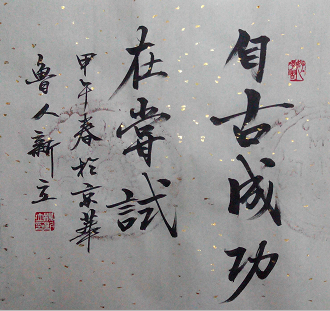 自古成功
在嘗試
甲午春於京華
魯人新立